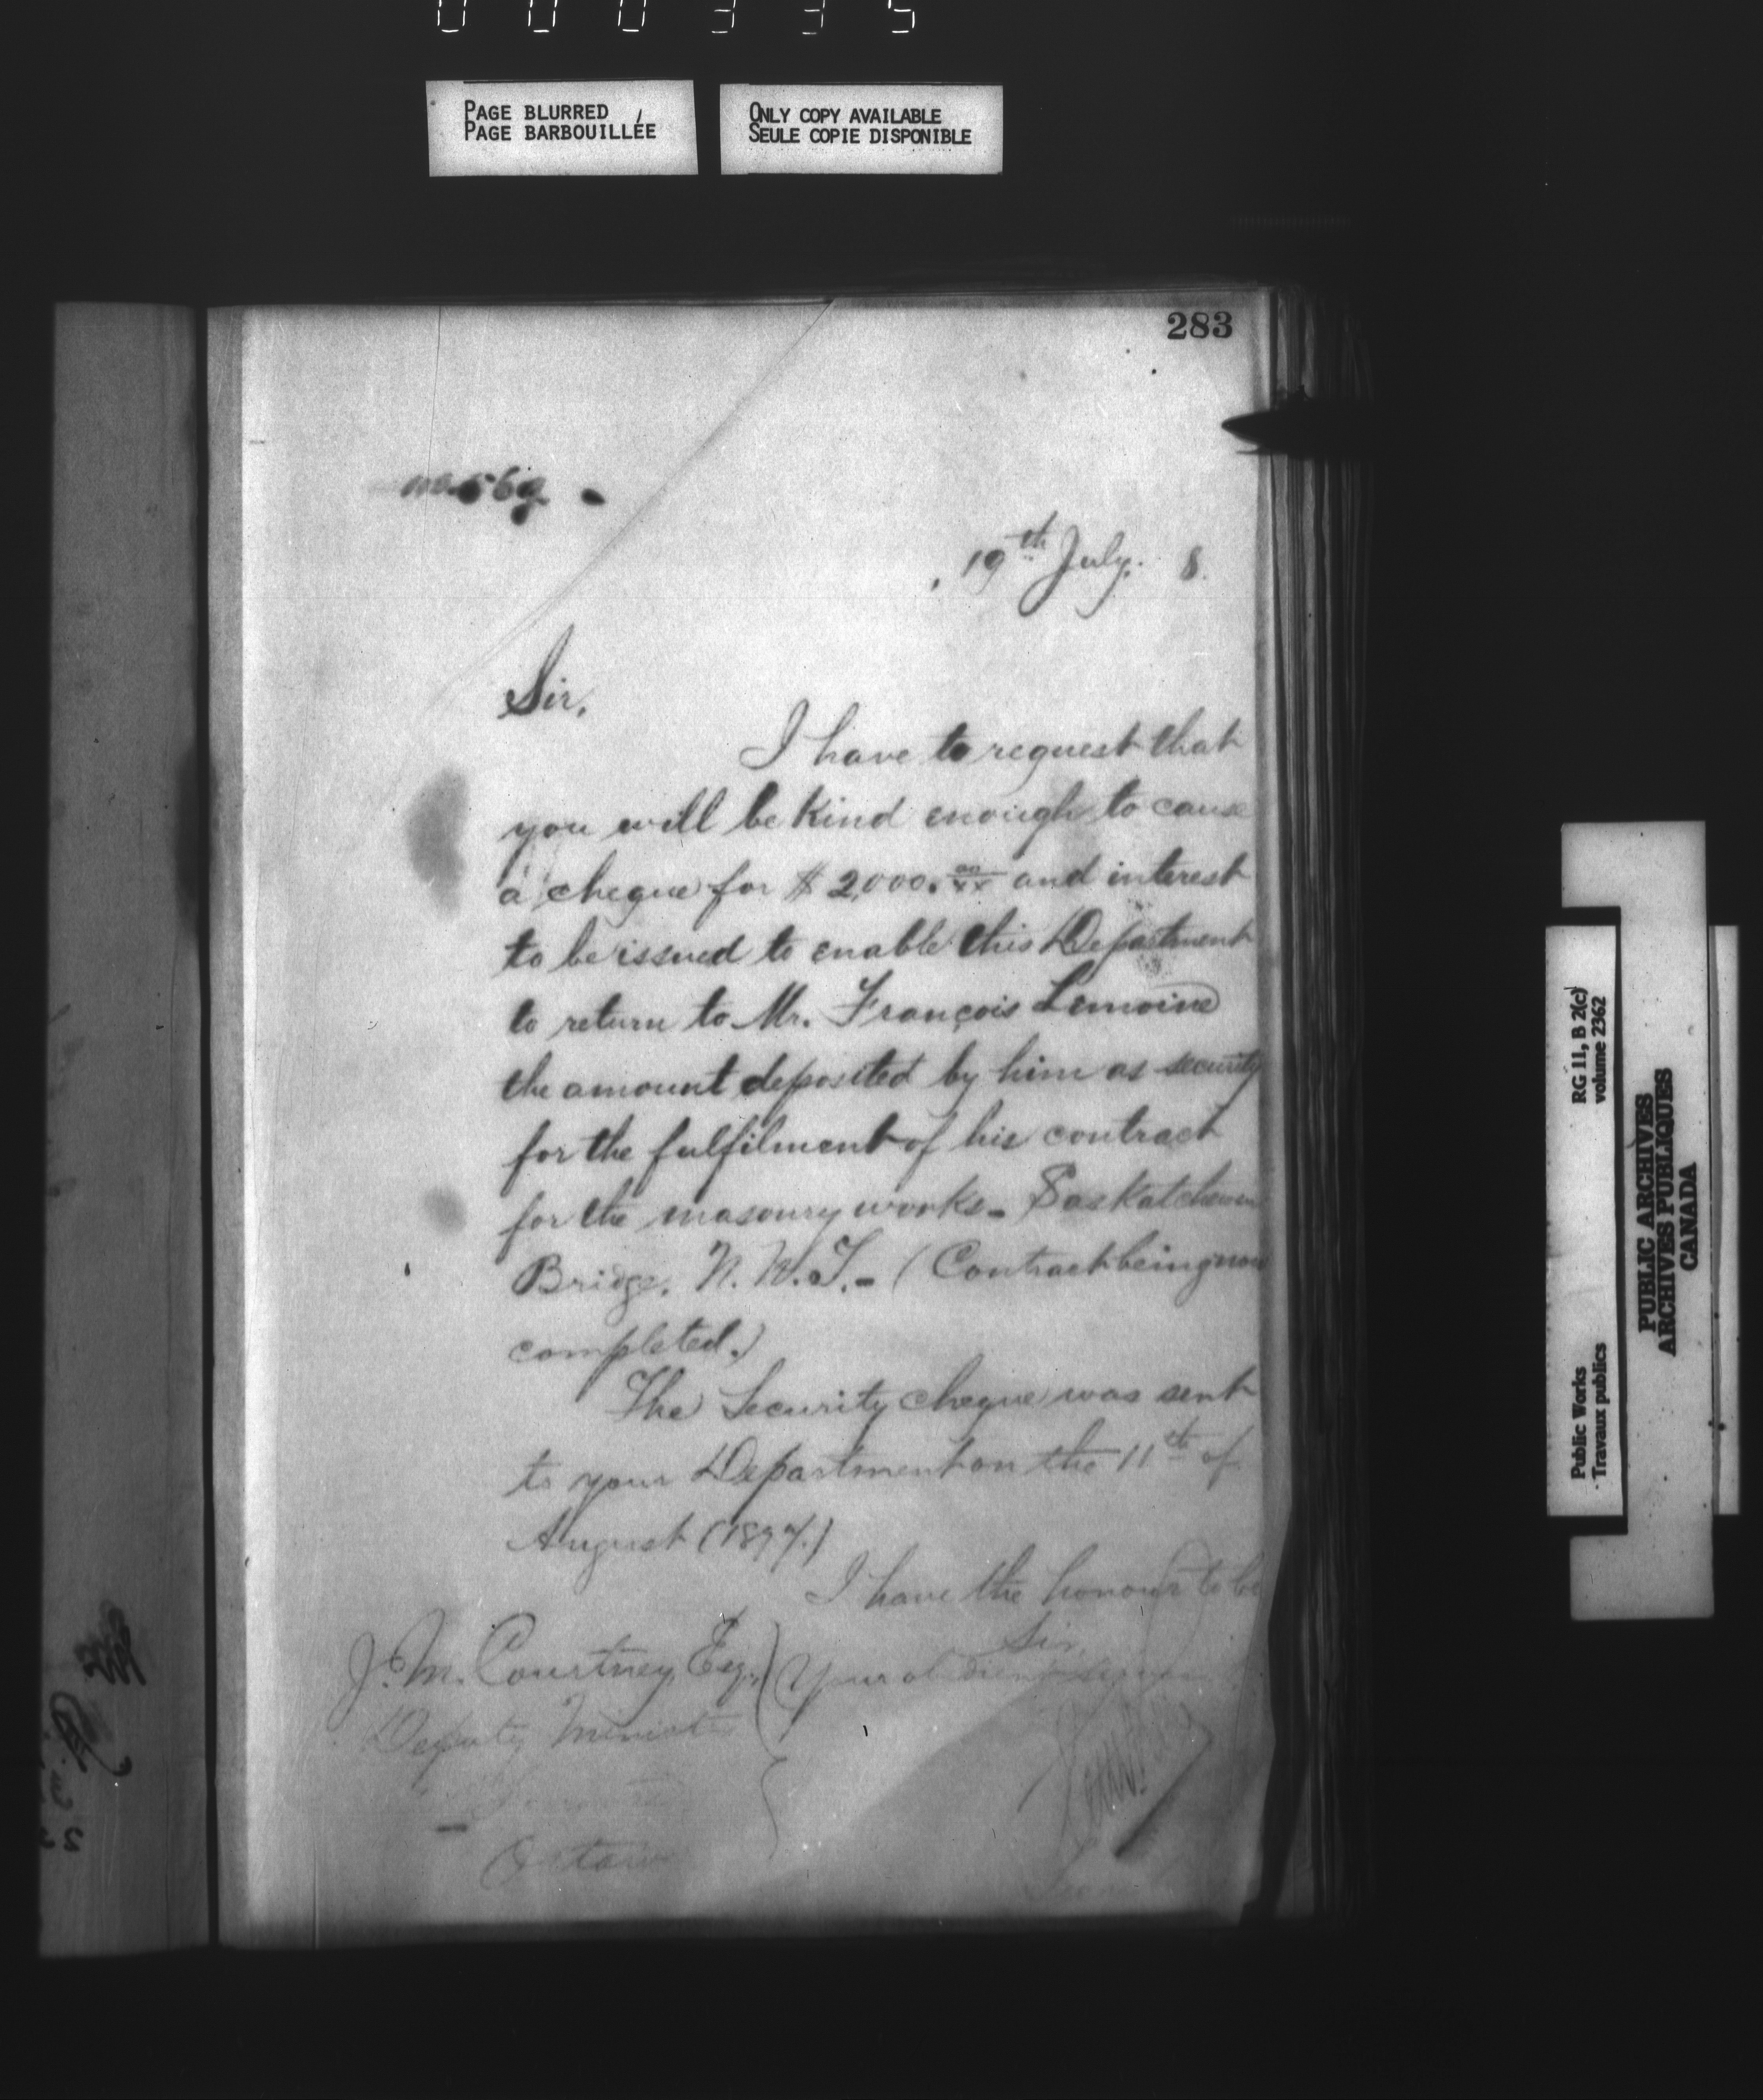 000335
PAGE BLURRED
PAGE BARBOUILLÉE
ONLY COPY AVAILABLE
SEULE COPIE DISPONIBLE
283
19th July. 8.
Sir,
I have to request that
you will be kind enough to cause
a cheque for $2,000.00/xx and interest
to be issued to enable this Department
to return to Mr. François Lemoine
the amount deposited by him as security
for the fulfilment of his contract
for the masonry works - Saskatchewan
Bridge, N.W.T. - (Contract being now
completed.)
The Security cheque was sent
to your Department on the 11th of
August (1897.)
I have the honour to be
Sir,
Your obedient
J. M. Courtney, Esq.,
Deputy Minister
Ottawa
Public Works
Travaux publics
RG 11, B 2(c)
volume 2362
PUBLIC ARCHIVES
ARCHIVES PUBLIQUES
CANADA